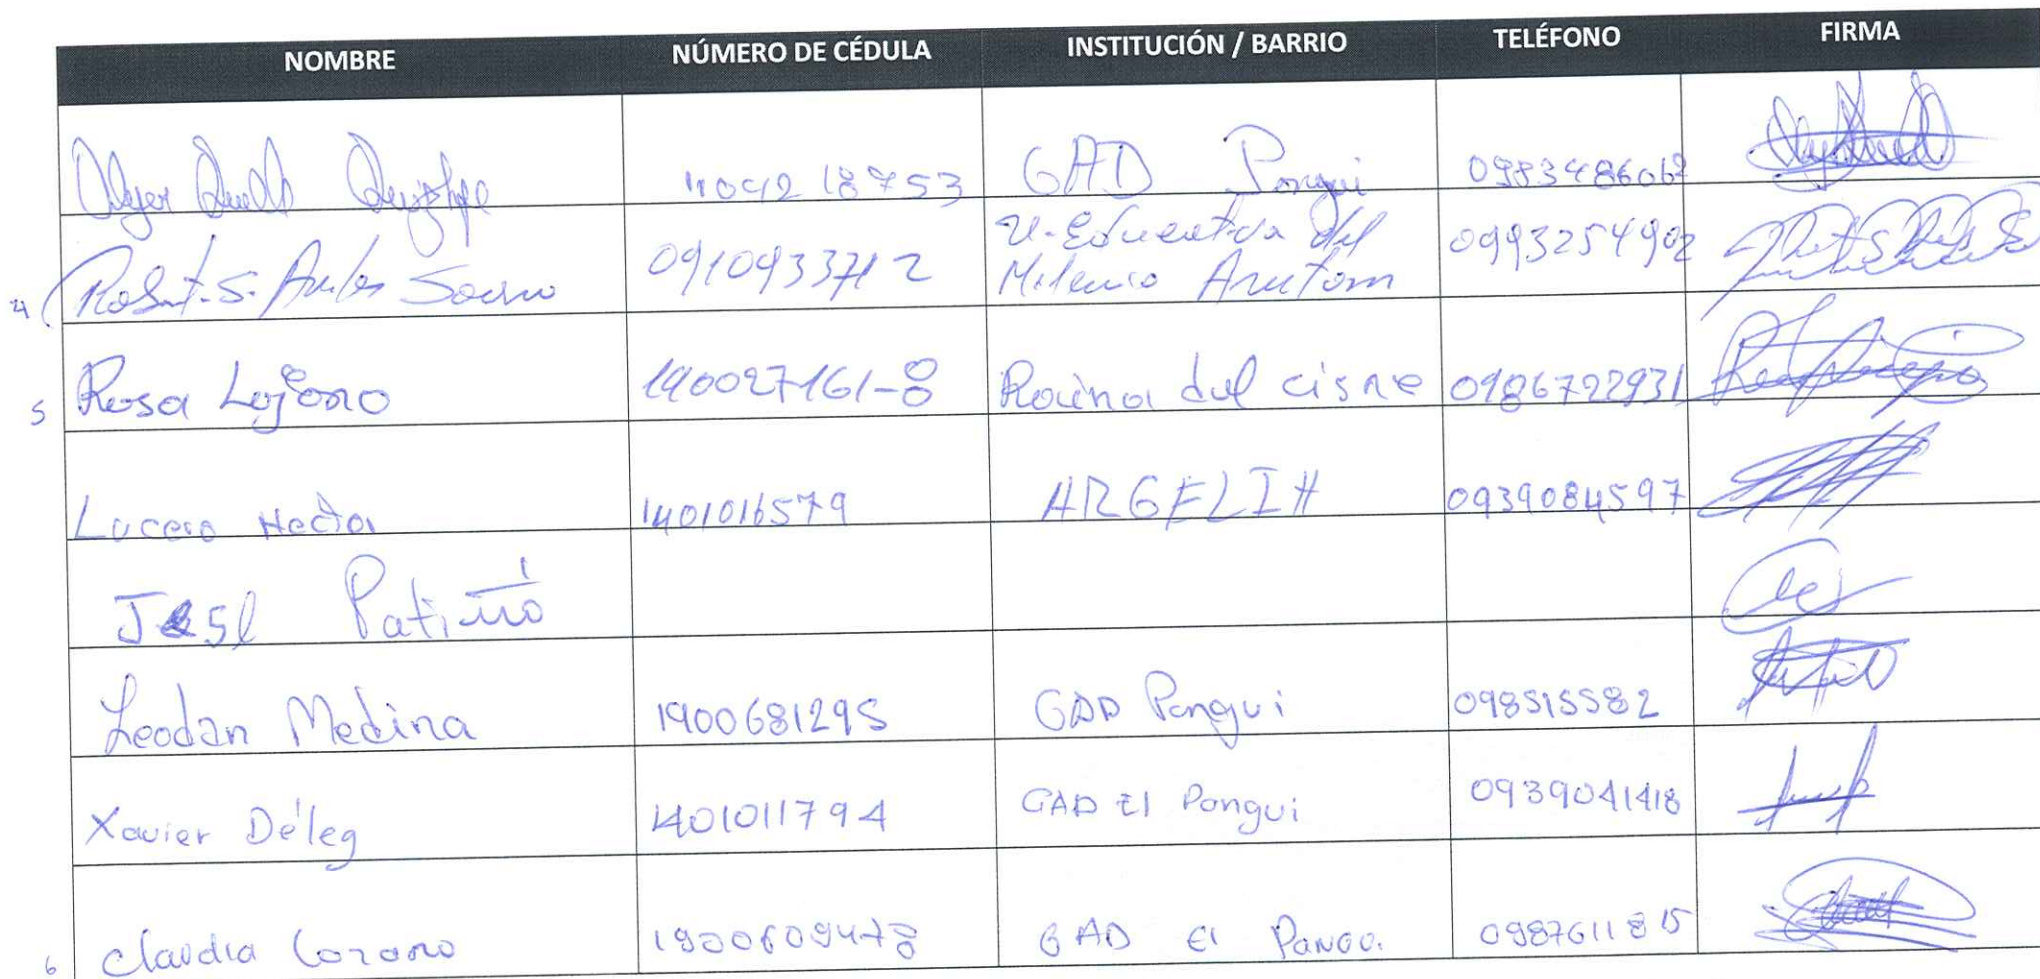 NOMBRE NÚMERO DE CÉDULA INSTITUCIÓN / BARRIO TELÉFONO FIRMA
GAD Pangui 0983486068
4 0910933712 U. Educativa del Milenio Arutam 0993254902
5 Rosa Lozano 190027161-8 Reina del cisne 0986722931
Lucero Hector 1401016579 ARGELIA 0939084597
Patiño
Leodan Medina 1900681295 GAD Pangui 098515582
Xavier Déleg 1401011794 GAD El Pangui 0939041418
6 Claudia Lozano 1900609478 GAD El Pangui 0987611815